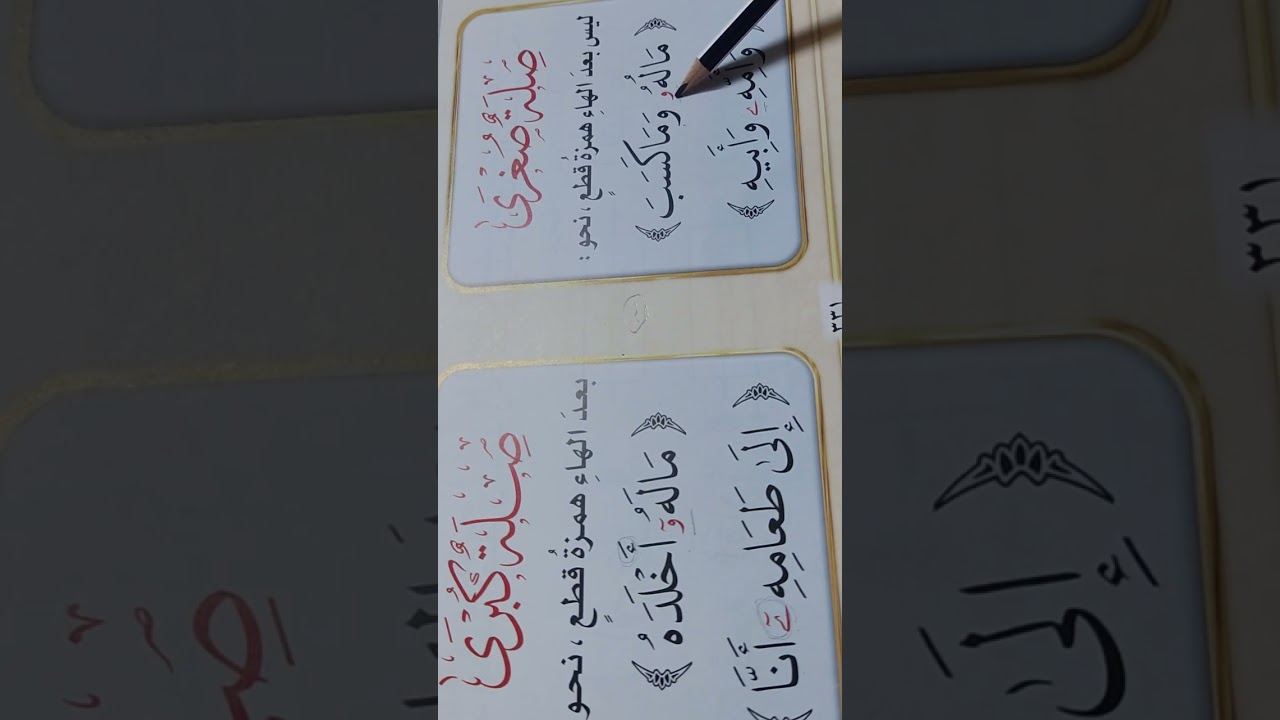 صِلَةٌ صُغْرَى
ليس بعدَ الهاءِ همزةُ قَطعٍ، نحو:
﴿ مَالُهُۥ وَمَا كَسَبَ ﴾
وَأُمِّهِۦ وَأَبِيهِ ﴾
٣٣١
صِلَةٌ كُبْرَى
بعدَ الهاءِ همزةُ قَطعٍ، نحو
﴿ مَالَهُۥٓ أَخْلَدَهُ ﴾
﴿ إِلَىٰ طَعَامِهِۦٓ أَنَّا ﴾